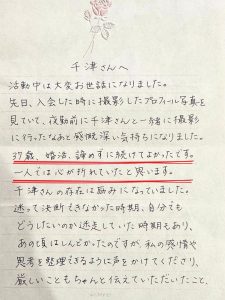 千津さんへ
活動中は大変お世話になりました。
先日、入会した時に撮影したプロフィール写真を
見ていて、夜勤前に千津さんと一緒に撮影
に行ったなあと感慨深い気持ちになりました。
37歳、婚活、諦めずに続けてよかったです。
一人では心が折れていたと思います。
千津さんの存在は励みになっていました。
迷って決断できなかった時期、自分でも
どうしたいのか迷走していた時期もあり、
あの頃はしんどかったのですが、私の感情や
思考を整理できるように声をかけてくださり、
厳しいこともちゃんと伝えていただいたこと、